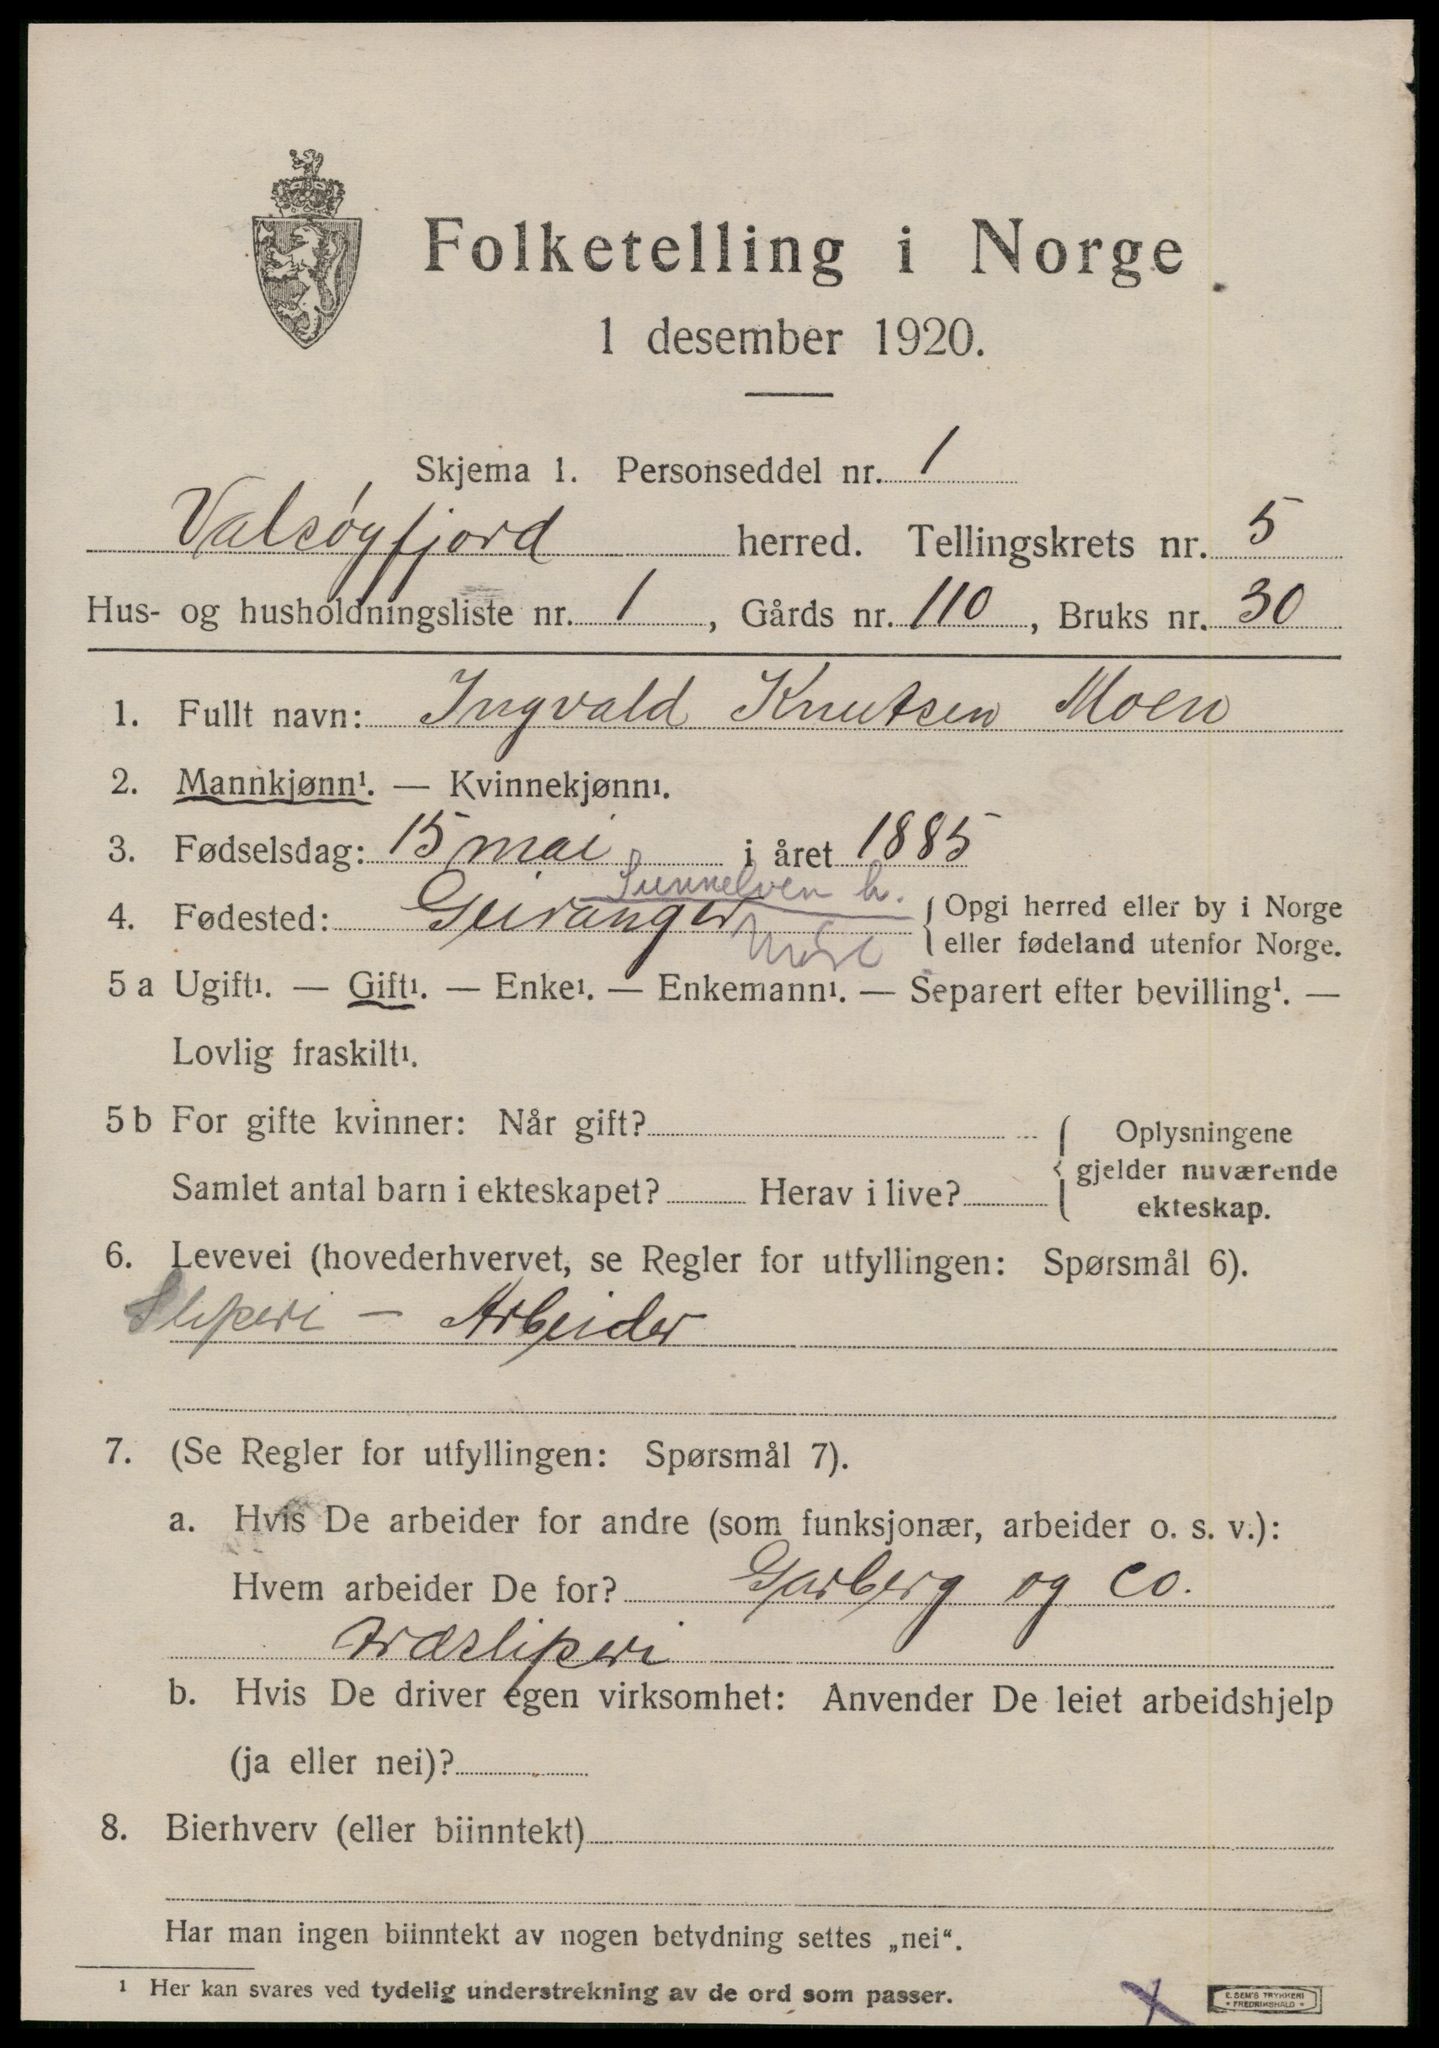 Folketelling i Norge
1 desember 1920.
Skjema 1. Personseddel nr. 1
Valsøyfjord herred. Tellingskrets nr. 5
Hus- og husholdningsliste nr. 1, Gårds nr. 110, Bruks nr. 30
1. Fullt navn: Ingvald Knutsen Moen
2. Mannkjønn¹. — Kvinnekjønn¹.
3. Fødselsdag: 15 mai i året 1885
Sunnelven h.
4. Fødested: Geiranger { Opgi herred eller by i Norge
Møre eller fødeland utenfor Norge.
5 a Ugift¹. — Gift¹. — Enke¹. — Enkemann¹. — Separert efter bevilling¹. —
Lovlig fraskilt¹.
5 b For gifte kvinner: Når gift? { Oplysningene
gjelder nuværende
Samlet antal barn i ekteskapet? Herav i live?
ekteskap.
6. Levevei (hovederhvervet, se Regler for utfyllingen: Spørsmål 6).
Sliperi - Arbeider
7. (Se Regler for utfyllingen: Spørsmål 7).
a. Hvis De arbeider for andre (som funksjonær, arbeider o. s. v.):
Hvem arbeider De for? Garberg og Co.
træsliperi
b. Hvis De driver egen virksomhet: Anvender De leiet arbeidshjelp
(ja eller nei)?
8. Bierhverv (eller biinntekt)
Har man ingen biinntekt av nogen betydning settes „nei“.
¹ Her kan svares ved tydelig understrekning av de ord som passer.
E. SEM'S TRYKKERI
* FREDRIKSHALD *